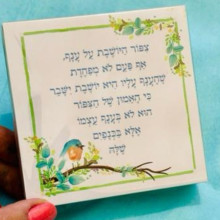 ציפור היושבת על ענף,
אף פעם לא מפחדת
שהענף עליו היא יושבת ישבר
כי האמון של הציפור
הוא לא בענף עצמו
אלא בכנפיים
שלה